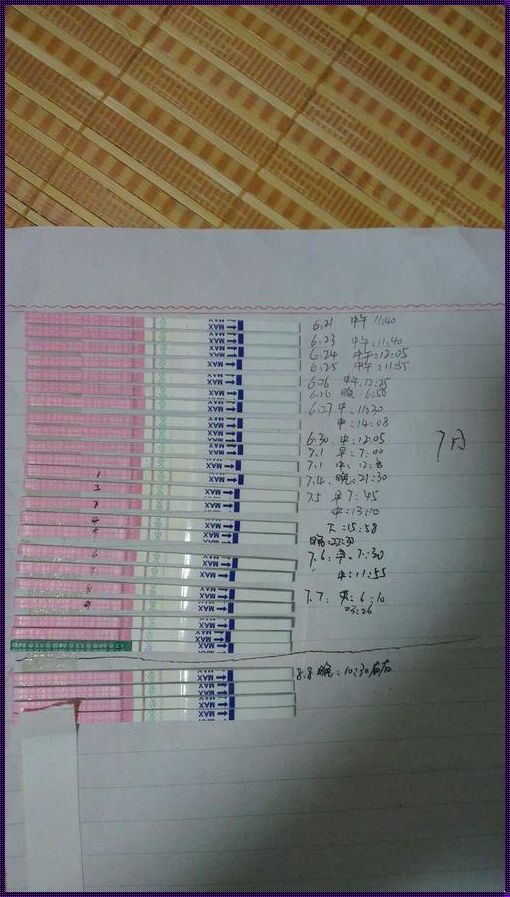 6.21 中午 11:40
6.23 中午:11:40
6.24 中午:12:05
6.25 中午:11:55
6.26 中午:12:25
6.26 晚:6:50
6.27 中:11:30
中:14:08
6.30 中:12:05
7.1 早:7:00
7.1 中:12:
7.4. 晚:21:30
7.5 早7:45
中:13:10
下:15:58
晚:22:30
7.6:早.7:30
中:11:55
7.7: :6:10
23:26
8.8 晚:10:30左右
7月
1
2
3
4
5
6
7
8
9
MAX
MAX
MAX
MAX
MAX
MAX
MAX
MAX
MAX
MAX
MAX
MAX
MAX
MAX
MAX
MAX
MAX
MAX
MAX
MAX
MAX
MAX
MAX
MAX